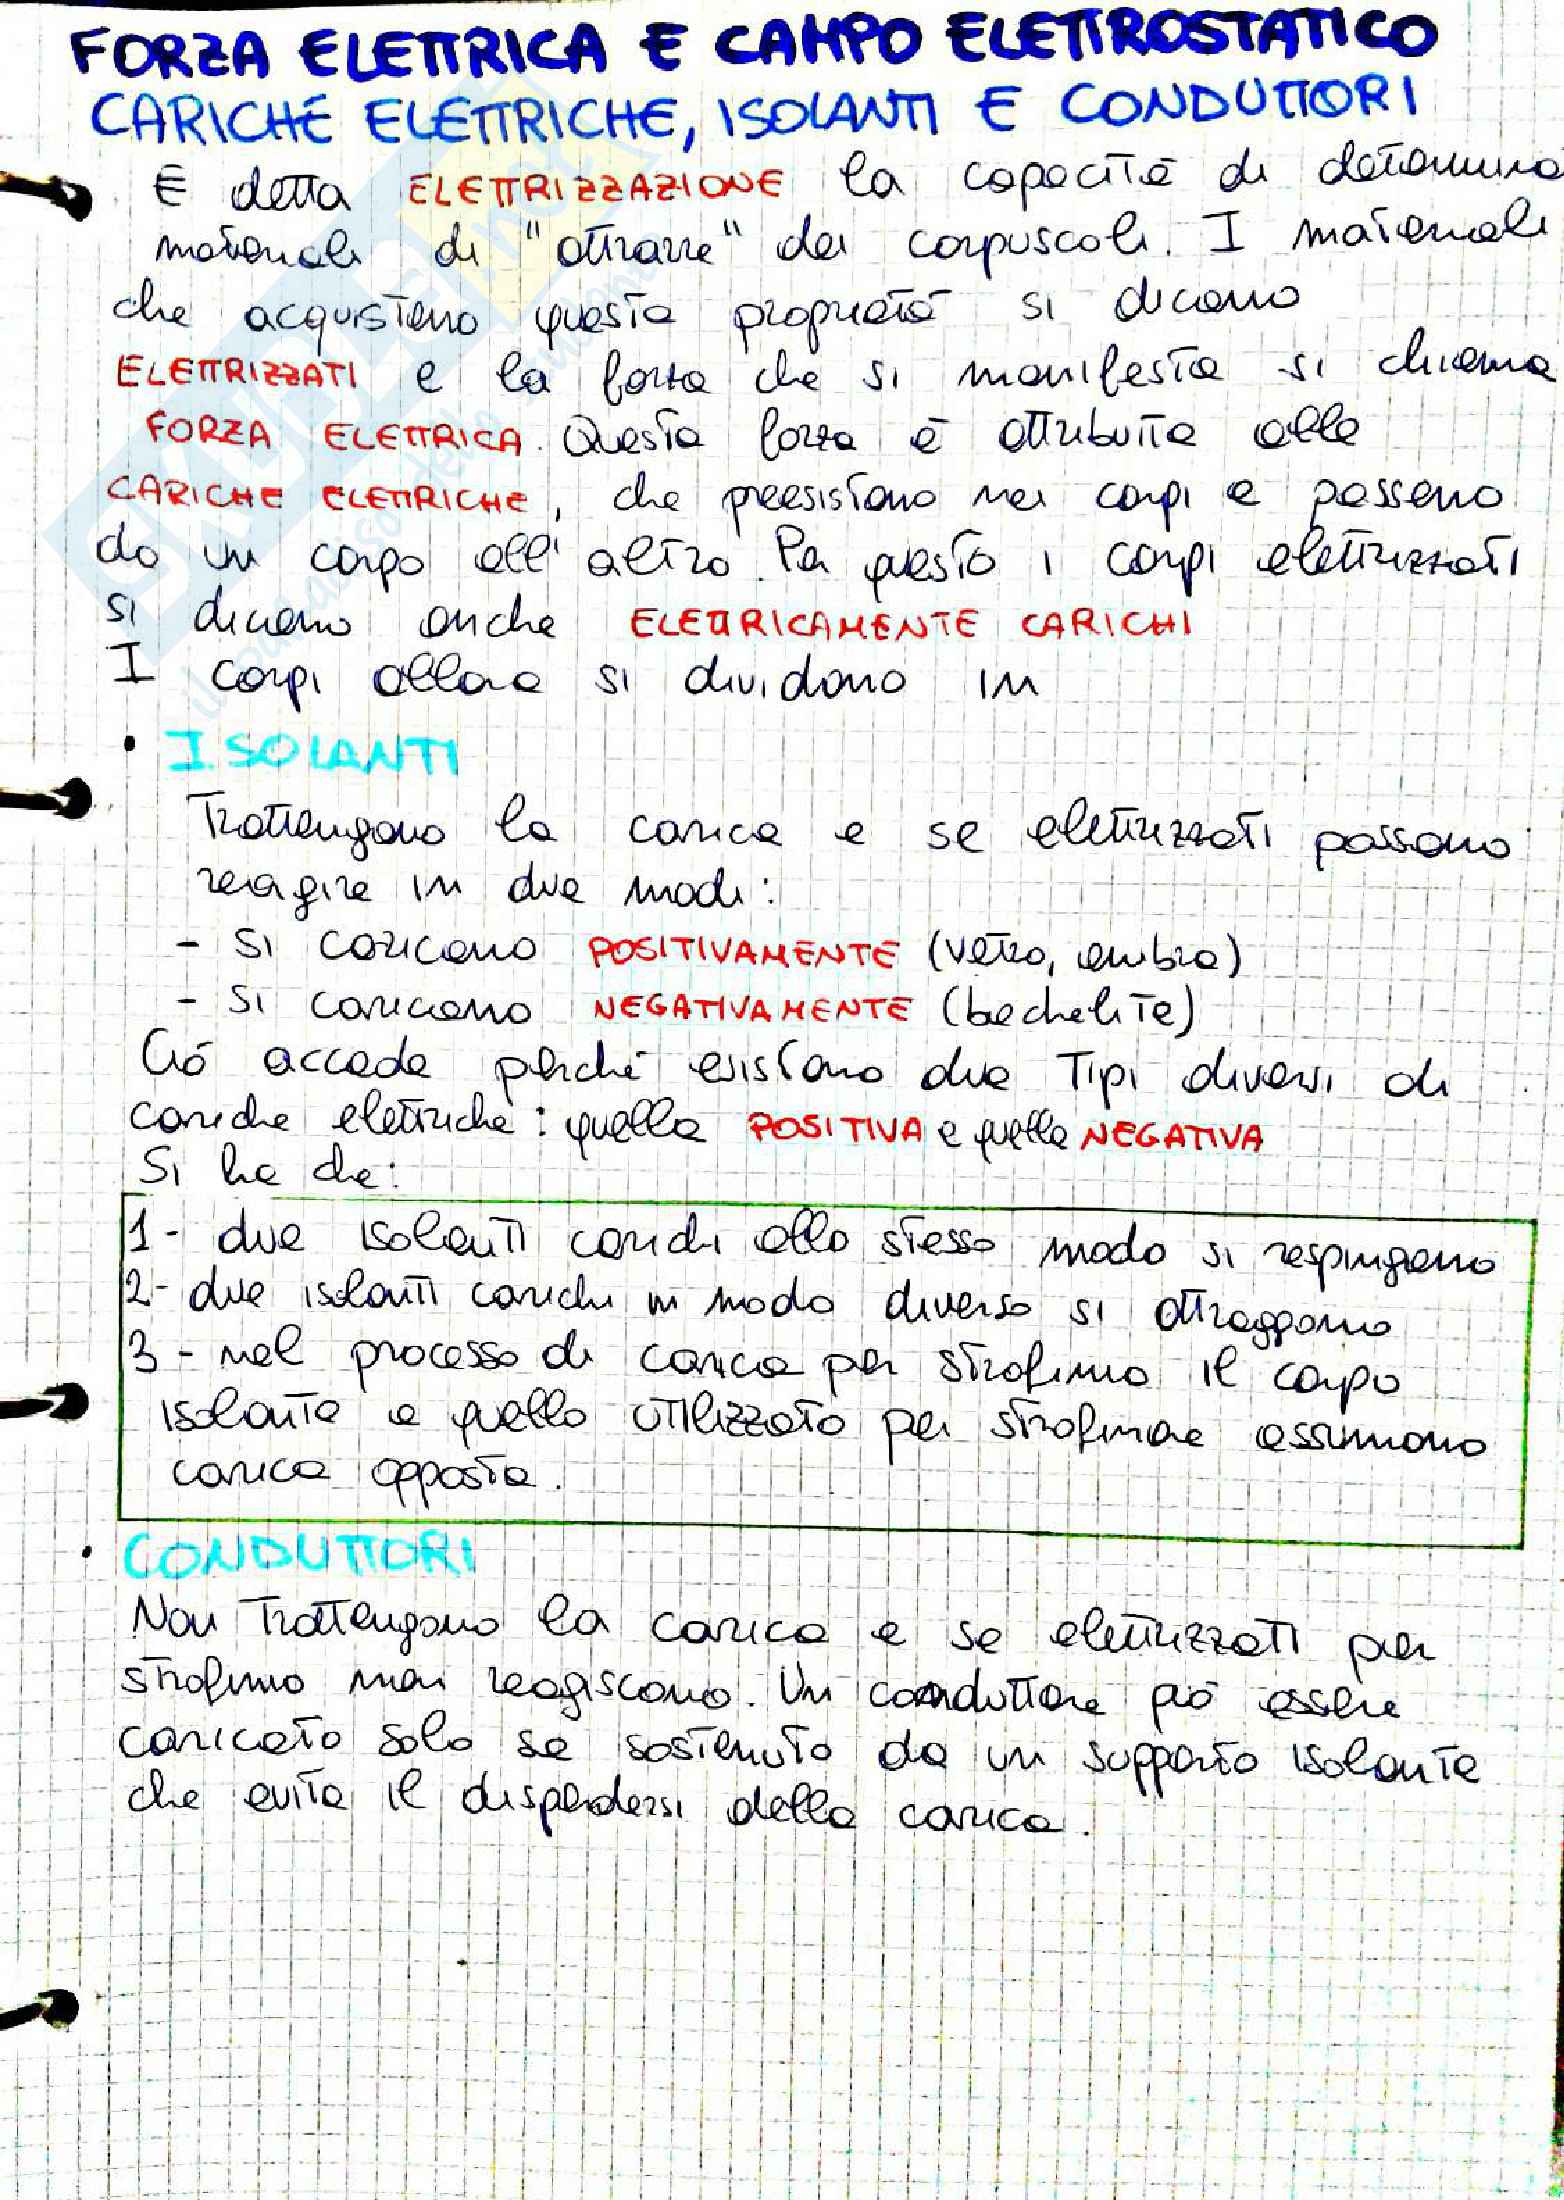 FORZA ELETTRICA E CAMPO ELETTROSTATICO
CARICHE ELETTRICHE, ISOLANTI E CONDUTTORI
È detta ELETTRIZZAZIONE la capacità di determina
materiali di "attrarre" dei corpuscoli. I materiali
che acquistano questa proprietà si dicono
ELETTRIZZATI e la forza che si manifesta si chiama
FORZA ELETTRICA. Questa forza è attribuita alle
CARICHE ELETTRICHE, che preesistono nei corpi e passano
da un corpo all'altro. Per questo i corpi elettrizzati
si dicono anche ELETTRICAMENTE CARICHI
I corpi allora si dividono in
• ISOLANTI
Trattengono la carica e se elettrizzati possono
reagire in due modi:
- si caricano POSITIVAMENTE (vetro, ambra)
- si caricano NEGATIVAMENTE (bachelite)
Ciò accade perché esistono due tipi diversi di
cariche elettriche: quella POSITIVA e quella NEGATIVA
Si ha che:
1- due isolanti carichi allo stesso modo si respingono
2- due isolanti carichi in modo diverso si attraggono
3- nel processo di carica per strofinio il corpo
isolante e quello utilizzato per strofinare assumono
carica opposta.
• CONDUTTORI
Non trattengono la carica e se elettrizzati per
strofinio non reagiscono. Un conduttore può essere
caricato solo se sostenuto da un supporto isolante
che evita il disperdersi della carica.